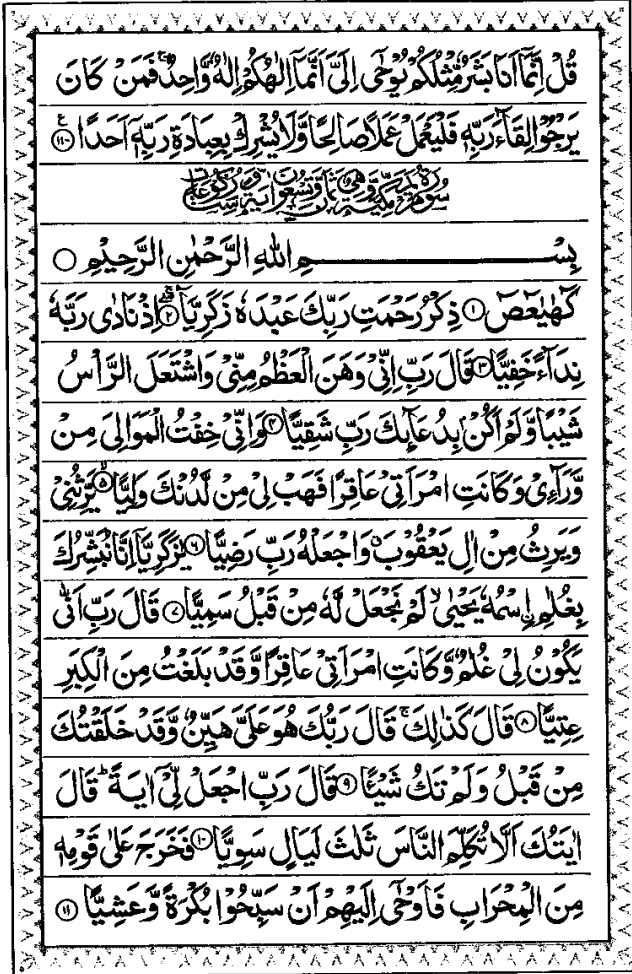 قُلْ اِنَّمَاۤ اَنَا بَشَرٌ مِّثْلُكُمْ يُوْحٰۤى اِلَیَّ اَنَّمَاۤ اِلٰهُكُمْ اِلٰهٌ وَّاحِدٌ ۚ فَمَنْ كَانَ
یَرْجُوْا لِقَآءَ رَبِّهٖ فَلْیَعْمَلْ عَمَلًا صَالِحًا وَّلَا یُشْرِكْ بِعِبَادَةِ رَبِّهٖۤ اَحَدًا ۱۱۰ ع
سورة مريم مكية وهي ثمان وتسعون اية وست ركوعات
بِسْمِ اللّٰهِ الرَّحْمٰنِ الرَّحِیْمِ
كٓهٰیٰعٓصٓ ۱ ذِكْرُ رَحْمَتِ رَبِّكَ عَبْدَهٗ زَكَرِیَّا ۲ اِذْ نَادٰى رَبَّهٗ
نِدَآءً خَفِیًّا ۳ قَالَ رَبِّ اِنِّیْ وَهَنَ الْعَظْمُ مِنِّیْ وَاشْتَعَلَ الرَّاْسُ
شَیْبًا وَّلَمْ اَكُنْۢ بِدُعَآئِكَ رَبِّ شَقِیًّا ۴ وَاِنِّیْ خِفْتُ الْمَوَالِیَ مِنْ
وَّرَآءِیْ وَكَانَتِ امْرَاَتِیْ عَاقِرًا فَهَبْ لِیْ مِنْ لَّدُنْكَ وَلِیًّا ۵ یَّرِثُنِیْ
وَیَرِثُ مِنْ اٰلِ یَعْقُوْبَ وَاجْعَلْهُ رَبِّ رَضِیًّا ۶ یٰزَكَرِیَّاۤ اِنَّا نُبَشِّرُكَ
بِغُلٰمِ ِ۟اسْمُهٗ یَحْیٰى ۙ لَمْ نَجْعَلْ لَّهٗ مِنْ قَبْلُ سَمِیًّا ۷ قَالَ رَبِّ اَنّٰى
یَكُوْنُ لِیْ غُلٰمٌ وَّكَانَتِ امْرَاَتِیْ عَاقِرًا وَّقَدْ بَلَغْتُ مِنَ الْكِبَرِ
عِتِیًّا ۸ قَالَ كَذٰلِكَ ۚ قَالَ رَبُّكَ هُوَ عَلَیَّ هَیِّنٌ وَّقَدْ خَلَقْتُكَ
مِنْ قَبْلُ وَلَمْ تَكُ شَیْـًٔا ۹ قَالَ رَبِّ اجْعَلْ لِّیْۤ اٰیَةً ؕ قَالَ
اٰیَتُكَ اَلَّا تُكَلِّمَ النَّاسَ ثَلٰثَ لَیَالٍ سَوِیًّا ۱۰ فَخَرَجَ عَلٰى قَوْمِهٖ
مِنَ الْمِحْرَابِ فَاَوْحٰۤى اِلَیْهِمْ اَنْ سَبِّحُوْا بُكْرَةً وَّعَشِیًّا ۱۱